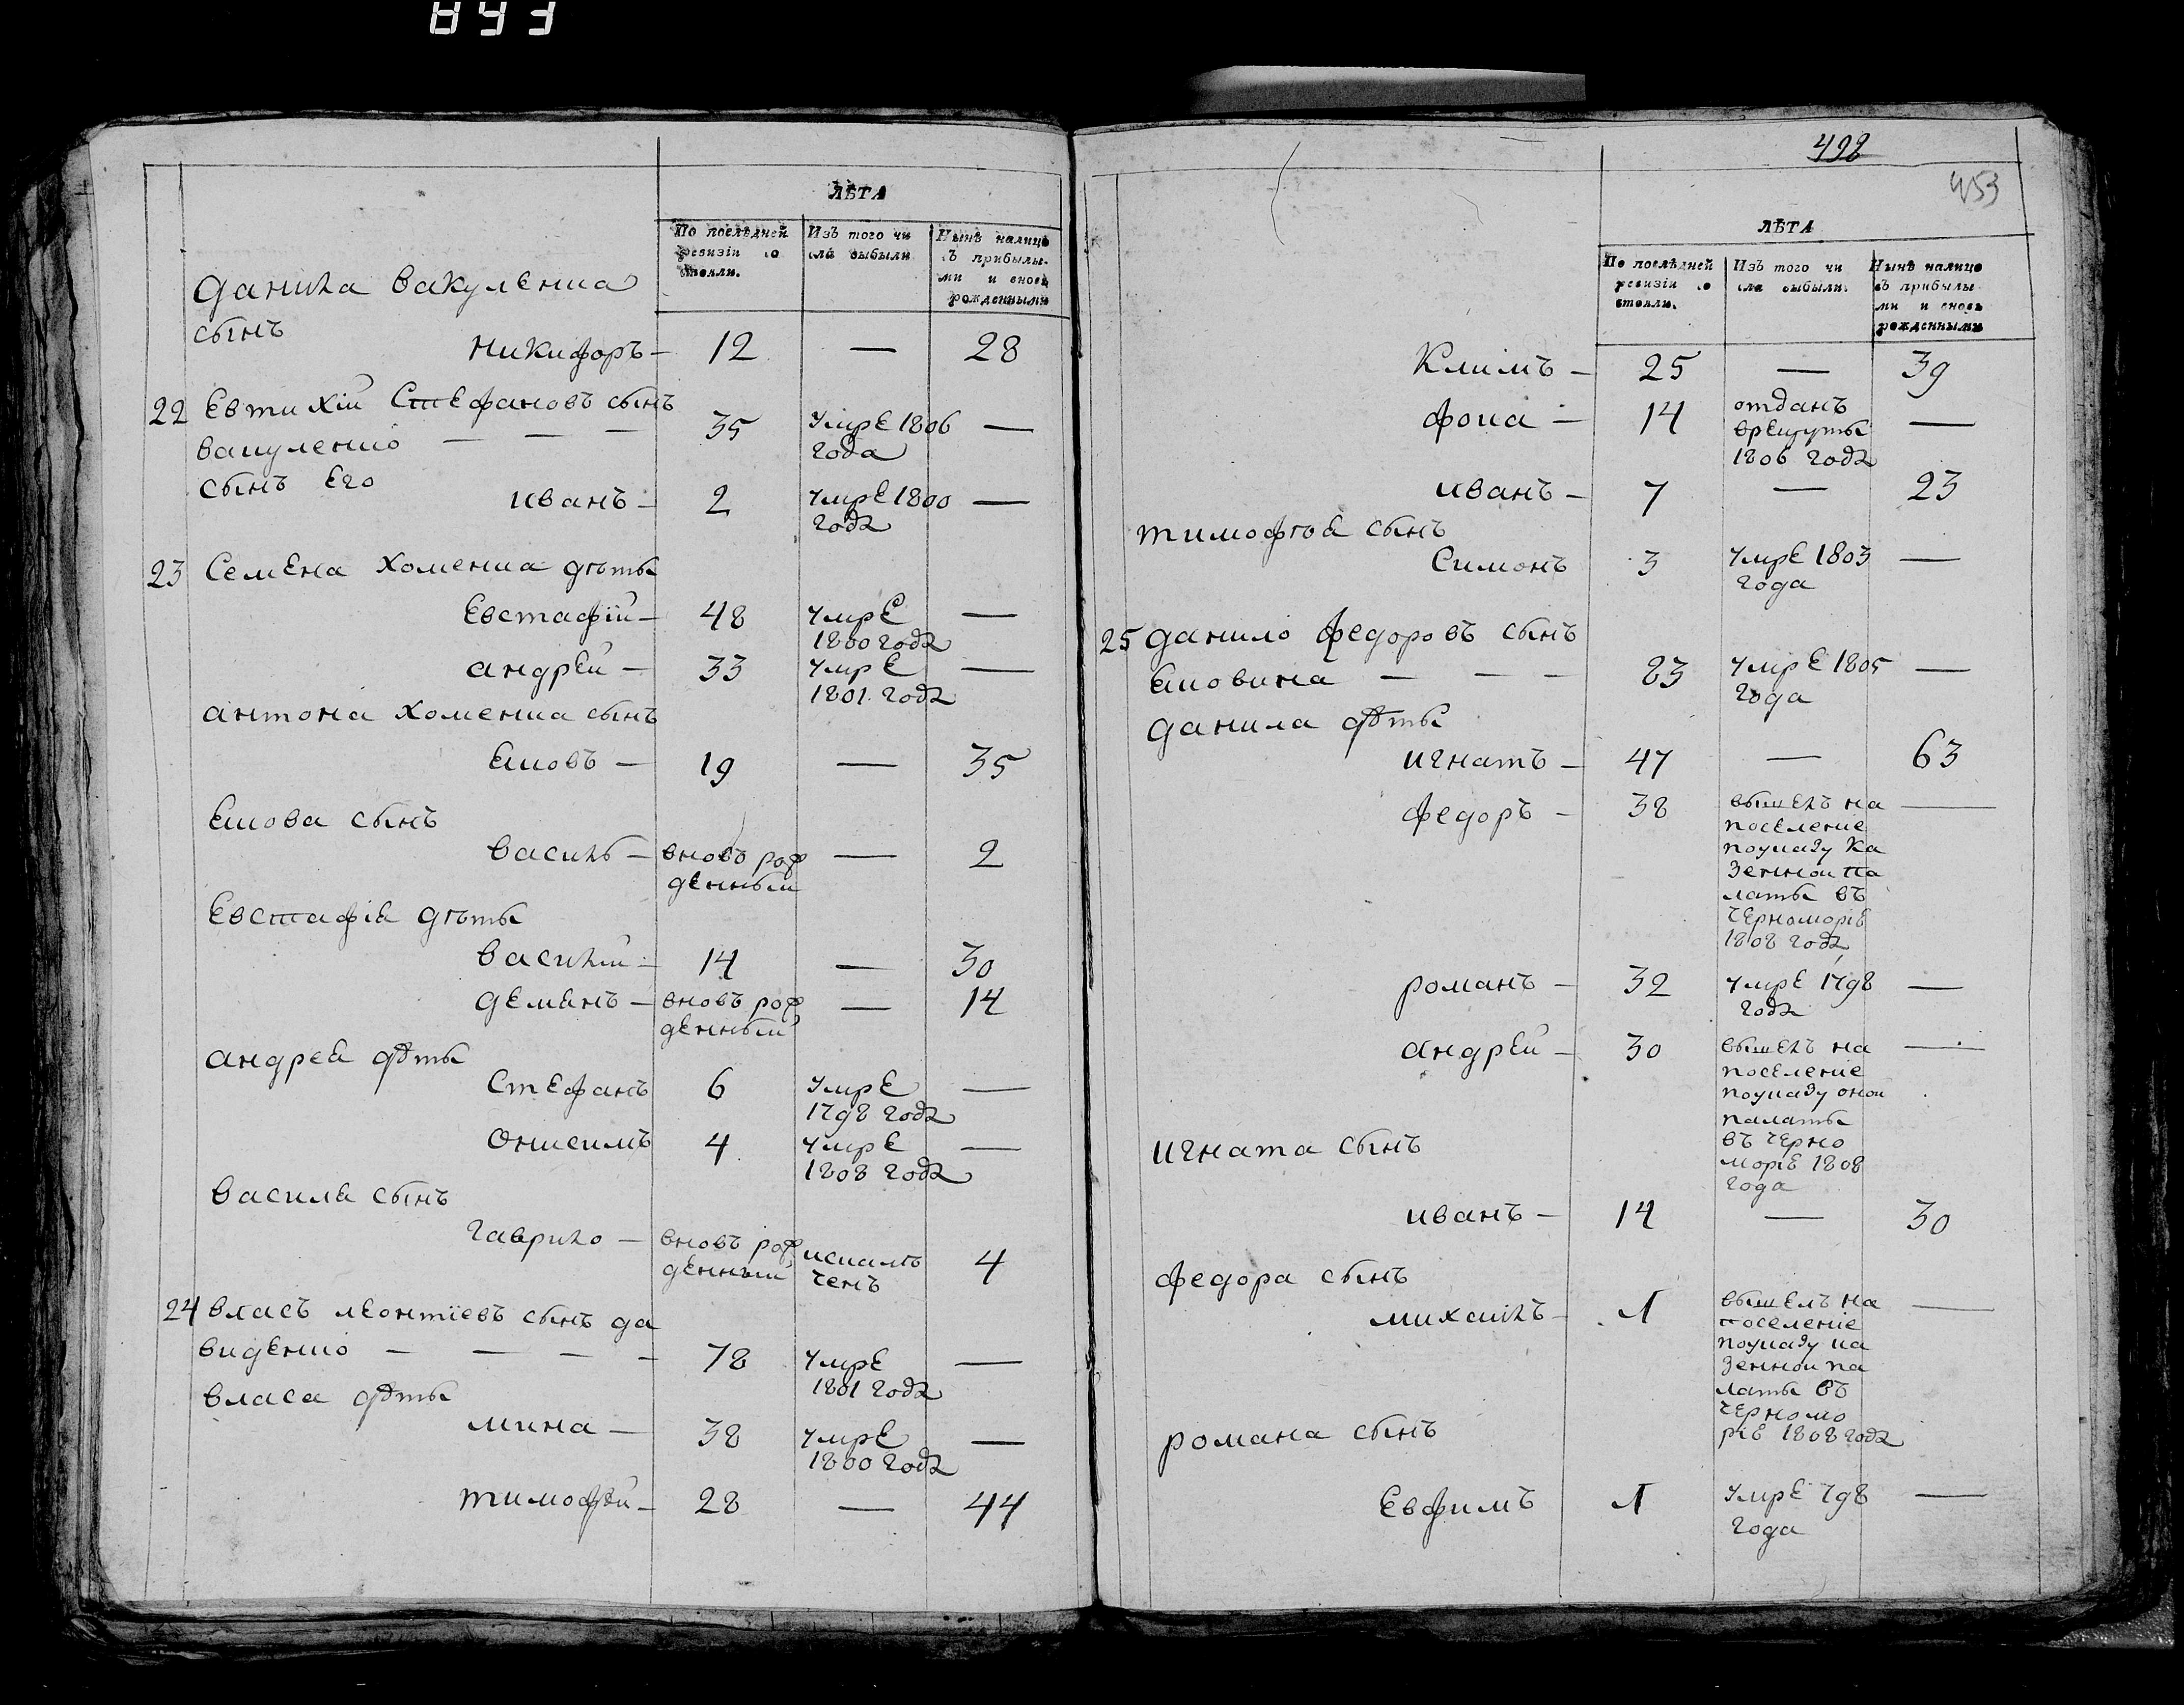 853
ЛѢТА
По послѣдней ревизіи состояли.
Изъ того числа выбыли
Нынѣ налицо съ прибылыми и вновь рожденными
Данила Вакуленка
сынъ
Никифоръ — 12 — 28
22 Евтихій Стефановъ сынъ
Вакуленко — — — 35 умре 1806 —
года
сынъ его
Иванъ — 2 умре 1800 —
года
23 Семена Хоменка дѣти
Евстафій — 48 умре —
1800 года
Андрей — 33 умре —
1801 года
Антона Хоменка сынъ
Яковъ — 19 — 35
Якова сынъ
Василь — вновь рож — 2
денный
Евстафія дѣти
Василій — 14 — 30
Демянъ — вновь рож — 14
денный
Андрея дѣти
Стефанъ 6 умре —
1798 года
Онисимъ 4 умре —
1808 года
Василя сынъ
Гаврило — вновь рож 4
денный
24 Власъ Леонтіевъ сынъ Да
виденко — — — — 78 умре —
1801 года
Власа дѣти
Мина — 38 умре —
1800 года
Тимофѣй — 28 — 44
498
453
ЛѢТА
По послѣдней ревизіи состояли.
Изъ того числа выбыли.
Нынѣ налицо съ прибылыми и вновь рожденными
Климъ — 25 — 39
Фока — 14 отданъ —
врекруты
1806 года
Иванъ — 7 — 23
Тимофѣя сынъ
Симонъ 3 умре 1803 —
года
25 Данило Федоровъ сынъ
Яковина — — — 83 умре 1805 —
года
Данила дѣти
Игнатъ — 47 — 63
Федоръ — 38 вышелъ на —
поселеніе
поуказу Ка
зенной Па
латы въ
Черноморіе
1808 года
Романъ — 32 умре 1798 —
года
Андрей — 30 вышелъ на —
поселеніе
поуказу оной
палаты
въ Черно
моріе 1808
года
Игната сынъ
Иванъ — 14 — 30
Федора сынъ
Михаилъ — 1 вышелъ на —
поселеніе
поуказу Ка
зенной Па
латы въ
Черномо
ріе 1808 года
Романа сынъ
Евфимъ 1 умре 798 —
года